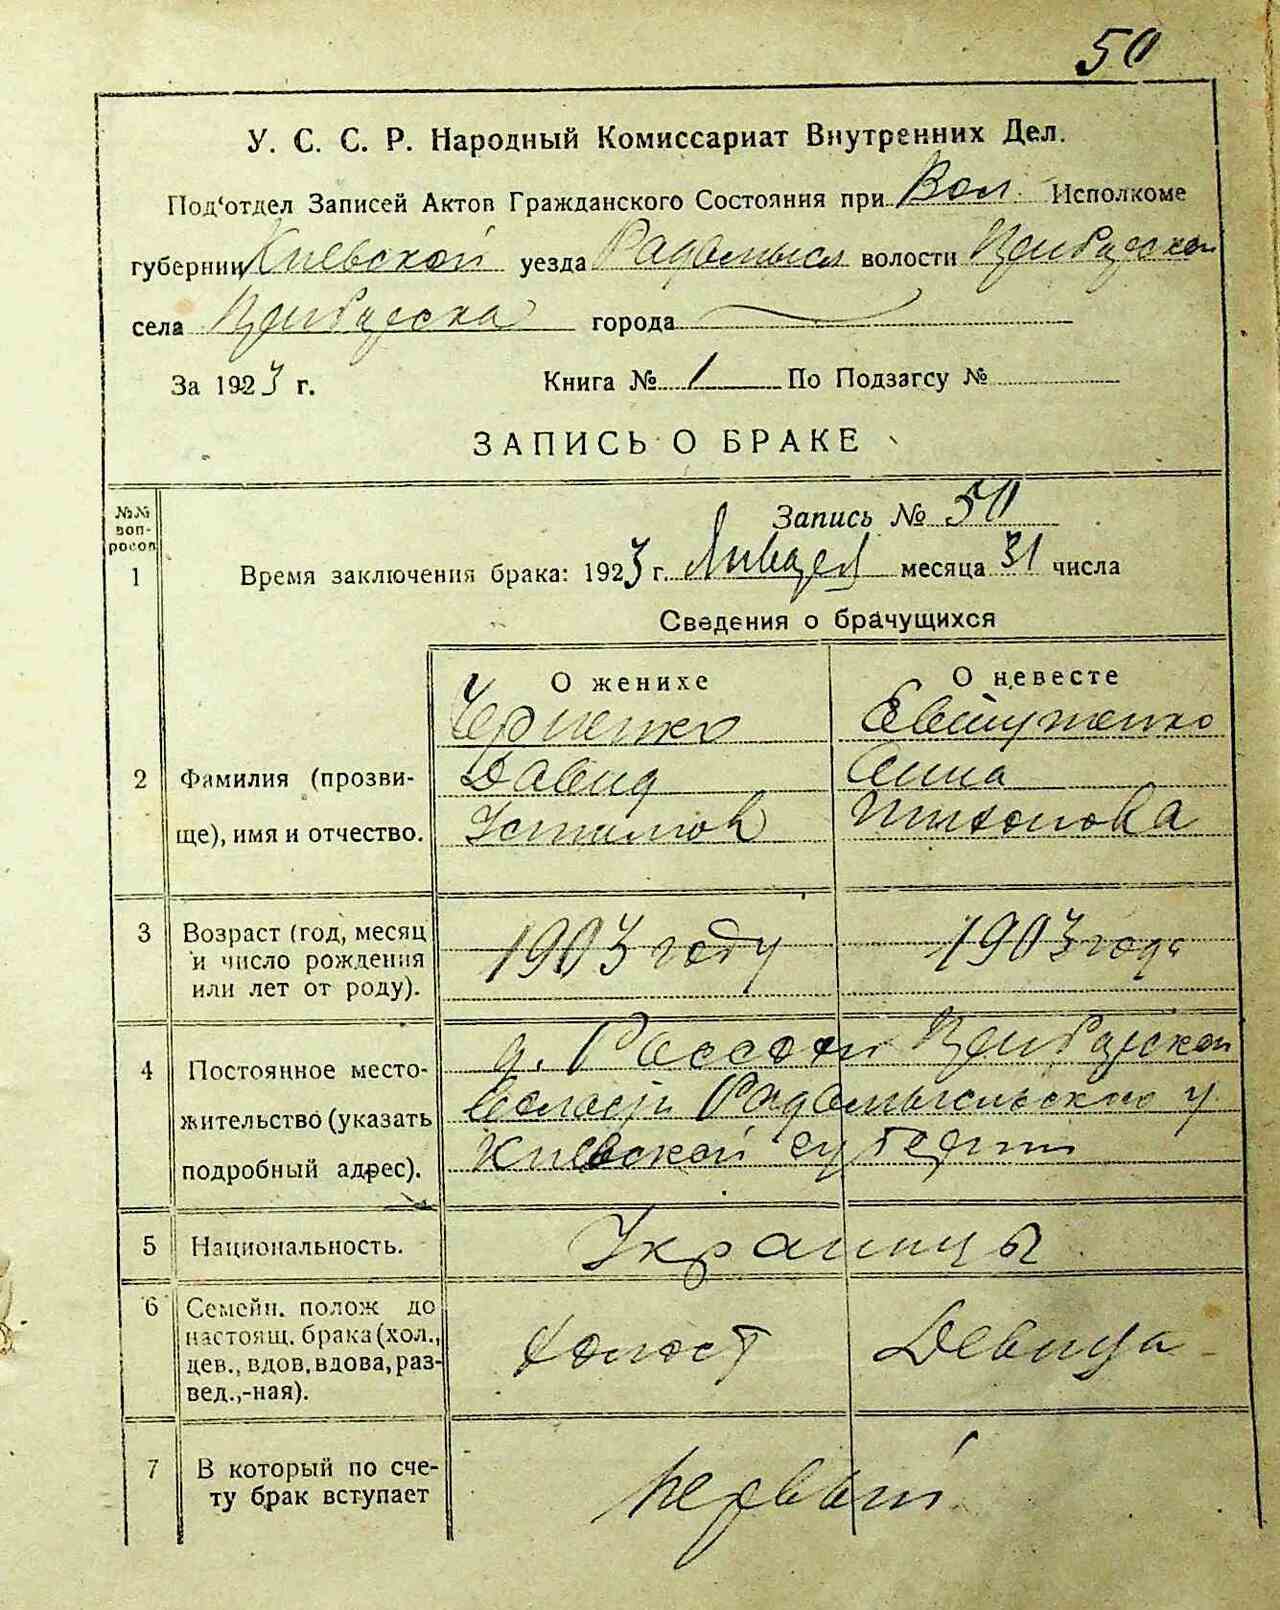 50
У. С. С. Р. Народный Комиссариат Внутренних Дел.
Под‘отдел Записей Актов Гражданского Состояния при Вол. Исполкоме
губернии Киевской уезда Радомысл волости
села города
За 1923 г. Книга № 1 По Подзагсу №
ЗАПИСЬ О БРАКЕ
№№ воп- росоп
Запись № 50
1 Время заключения брака: 1923 г. Января месяца 31 числа
Сведения о брачущихся
О женихе О невесте
Черненко Евтушенко
2 Фамилия (прозви- Давид Анна
ще), имя и отчество. Устимов Тихонова
3 Возраст (год, месяц
и число рождения 1903 году 1903 года
или лет от роду).
4 Постоянное место- д.
жительство (указать волости Радомысльского у
подробный адрес). Киевской губернии
5 Национальность. Украинцы
6 Семейн. полож до
настоящ. брака (хол., холост Девица
дев., вдов, вдова, раз-
вед.,-ная).
7 В который по сче- первый
ту брак вступает